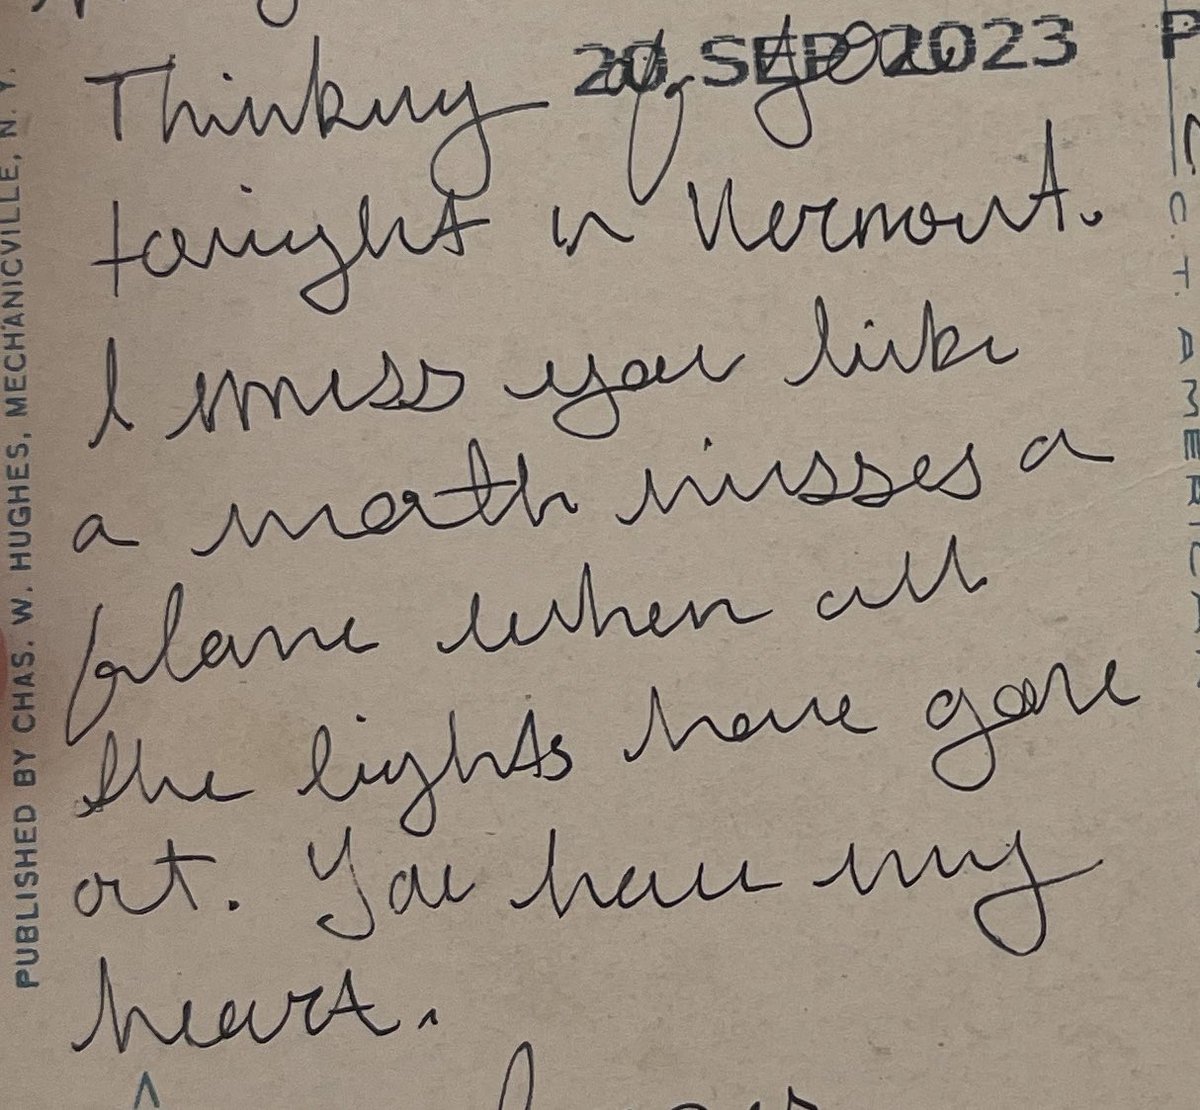 20 SEP 2023 P
Thinking of you
tonight in Vermont.
I miss you like
a moth misses a
flame when all
the lights have gone
out. You have my
heart.
PUBLISHED BY CHAS. W. HUGHES, MECHANICVILLE, N. Y.
C.T. AMERICAN